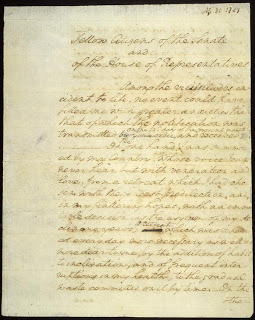 Fellow Citizens of the Senate
and
of the House of Representatives
Among the vicissitudes in-
cident to life, no event could have
filled me with greater anxieties than
that of which the notification was
on the 14th day of the present month
transmitted by your order, and received
On the one hand, I was summon-
ed by my Country, whose voice I can
never hear but with veneration and
love, from a retreat which I had cho-
sen with the fondest predilection, and,
in my flattering hopes, with an immu-
table decision, as the asylum of my de-
clining years: which was
every day more necessary as well as
more dear to me, by the addition of habit
to inclination, and of frequent inter-
ruptions in my health to the gradual
waste committed on it by time. On the